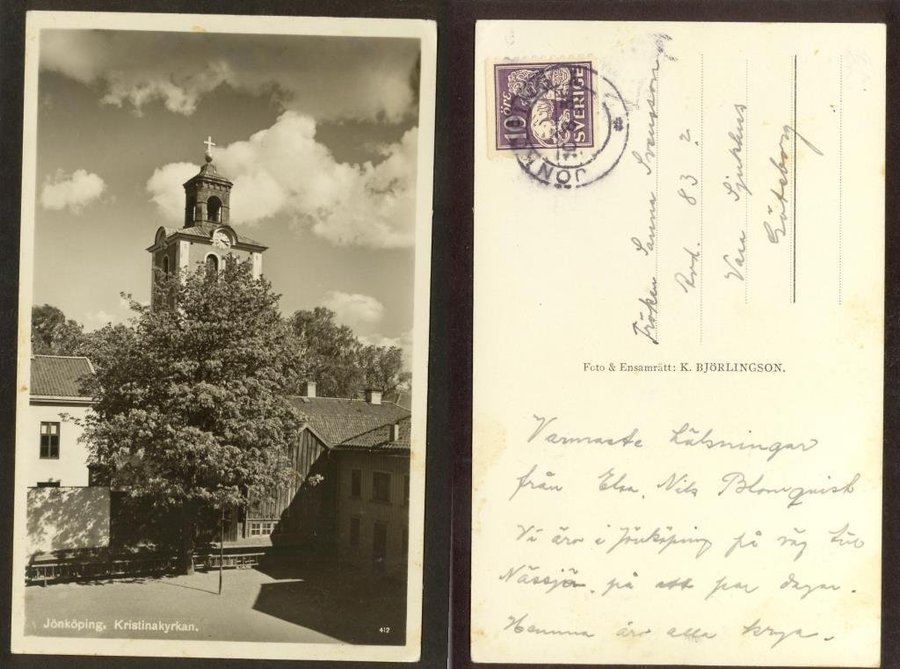 Jönköping. Kristinakyrkan.
412
10 öre
SVERIGE
Fröken Sanna Svensson
Avd. 83 2
Vasa Sjukhus
Göteborg
Foto & Ensamrätt: K. BJÖRLINGSON.
Varmaste hälsningar
från Elsa, Nils Blomqvist
Vi äro i Jönköping på väg till
Nässjö på ett par dagar.
Hemma äro alla krya.